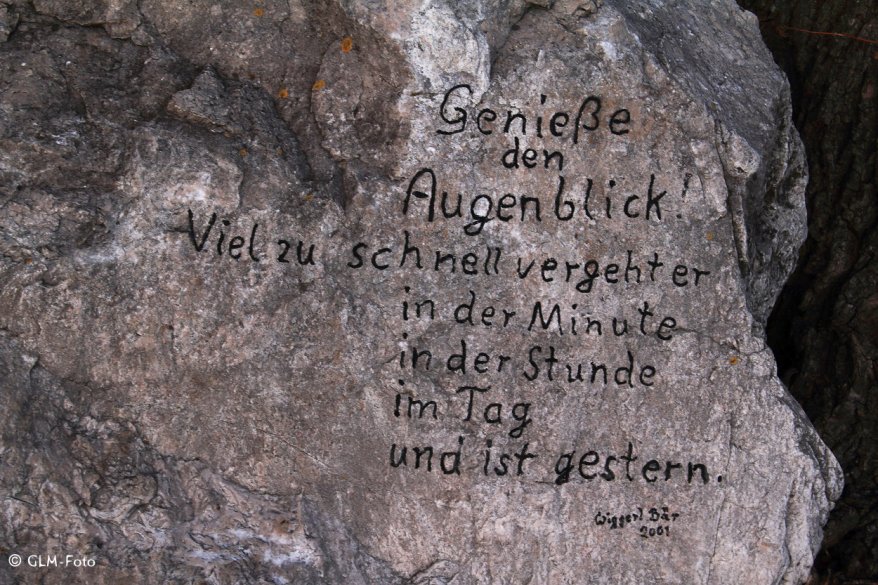 Genieße
den
Augenblick!
Viel zu schnell vergeht er
in der Minute
in der Stunde
im Tag
und ist gestern.
Wiggerl Bär
2001
© GLM-Foto